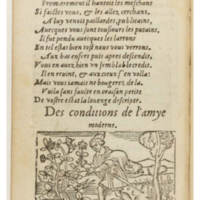 Premierement il hantoit les meschans
Si faictes vous, & les allez cerchant,
A luy venoit paillardes, publicains,
Auecques vous sont tousiours les putains,
Il fut pendu auecques les larrons
En tel estat bien tost nous vous verrons.
Aux bas enfers puis apres descendit,
Vous en auez bien vn semblable credit.
Il en reuint, & aux cieux s'en volla:
Mais vous iamais ne bougerez de la.
Voila sans faincte en raison petite
De vostre estat la louenge descripte.
Des conditions de l'amye
moderne.